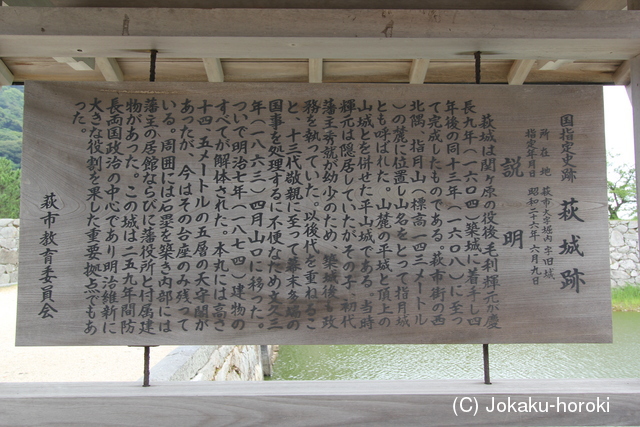 国指定史跡 萩城跡
所在地 萩市大字堀内字旧城
指定年月日 昭和二十六年六月九日
説明
萩城は関ヶ原の役後毛利輝元が慶
長九年(一六〇四)築城に着手し四
年後の同十三年(一六〇八)に至っ
て完成したものである。萩市街の西
北隅、指月山(標高一四三メートル
)の麓に位置し山名をとって指月城
とも呼ばれた。山麓の平城と頂上の
山城とを併せた平山城である。当時
輝元は隠居していたがその子、初代
藩主秀就が幼少のため、築城後も政
務を執っていた。以後代を重ねるこ
と、十三代敬親に至って幕末多端の
国事を処理するに不便なため文久三
年(一八六三)四月山口に移った。
ついで明治七年(一八七四)建物の
すべてが解体された。本丸には高さ
十四、五メートルの五層の天守閣が
あったが、今はその台座のみ残って
いる。周囲には石塁を築き内部には
藩主の居館ならびに藩役所と付属建
物があった。この城は二五九年間防
長両国政治の中心であり明治維新に
大きな役割を果した重要拠点でもあ
った。
萩市教育委員会
(C) Jokaku-horoki